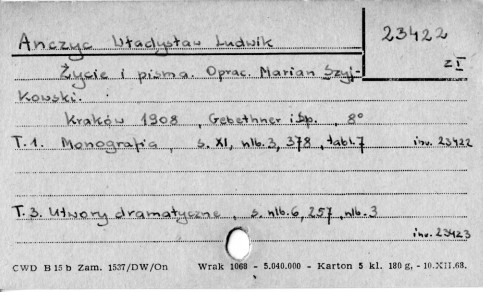 23422
z I
Anczyc Władysław Ludwik
Życie i pisma. Oprac. Marian Szyj-
kowski.
Kraków 1908, Gebethner i Sp., 8°
T.1. Monografia, s. XI, nlb.3, 378, tabl.7 inw. 23422
T.3. Utwory dramatyczne, s. nlb.6, 257, nlb.3
inw. 23423
CWD B 15 b Zam. 1537/DW/On Wrak 1068 - 5.040.000 - Karton 5 kl. 180 g. - 10.XII.68.